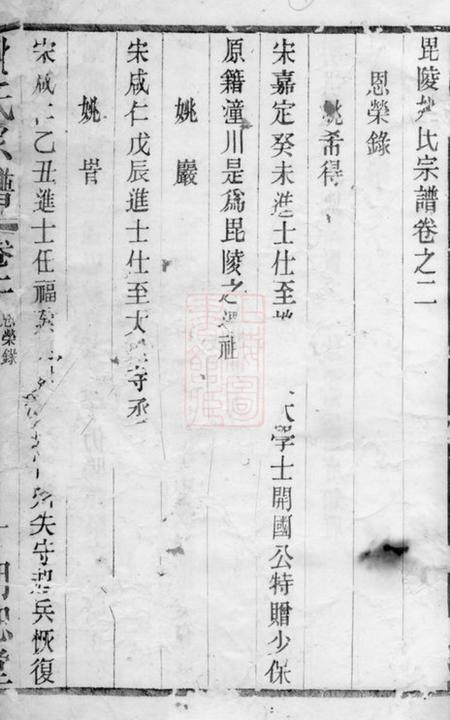 毘陵姚氏宗譜卷之二
恩榮錄
姚希得
宋嘉定癸未進士仕至 大學士開國公特贈少保
原籍潼川是爲毘陵之遷祖
姚巖
宋咸仁戊辰進士仕至大 寺丞
姚訔
宋咸仁乙丑進士任福 失守 兵恢復
氏宗譜 卷二 恩榮錄 一
上海圖書館藏